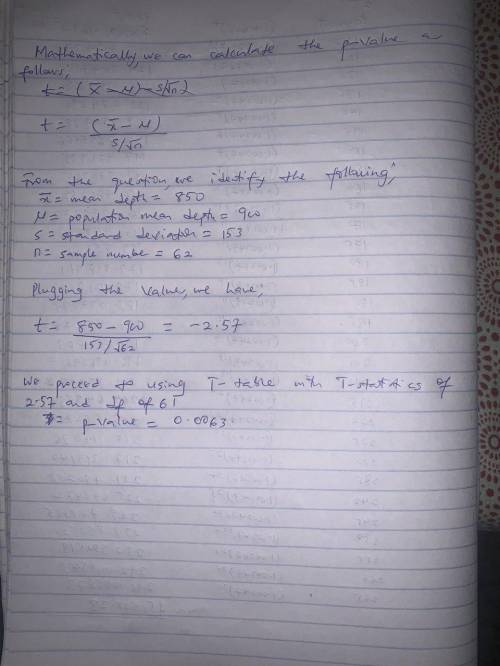 Mathematically, we can calculate the p-value as
follows,
t = (x̄ - μ) - s/√n)
t = (x̄ - μ)
s/√n
From the question, we identify the following,
x̄ = mean depth = 850
μ = population mean depth = 900
s = standard deviation = 153
n = sample number = 62
Plugging the value, we have,
t = 850 - 900 = -2.57
153/√62
We proceed to using T-table with T-statistics of
2.57 and df of 61
= p-value = 0.0063